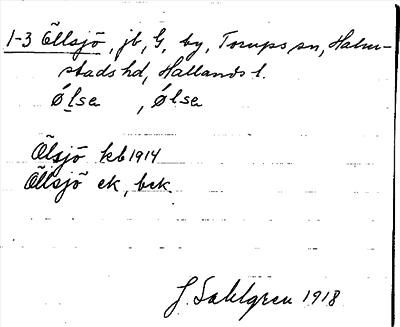 1-3 Öllsjö, jb, G, by, Torups sn, Halm-
stads hd, Hallands l.
Ølsa, Ølsa
Ölsjö kb 1914
Öllsjö ek, bek.
J. Sahlgren 1918